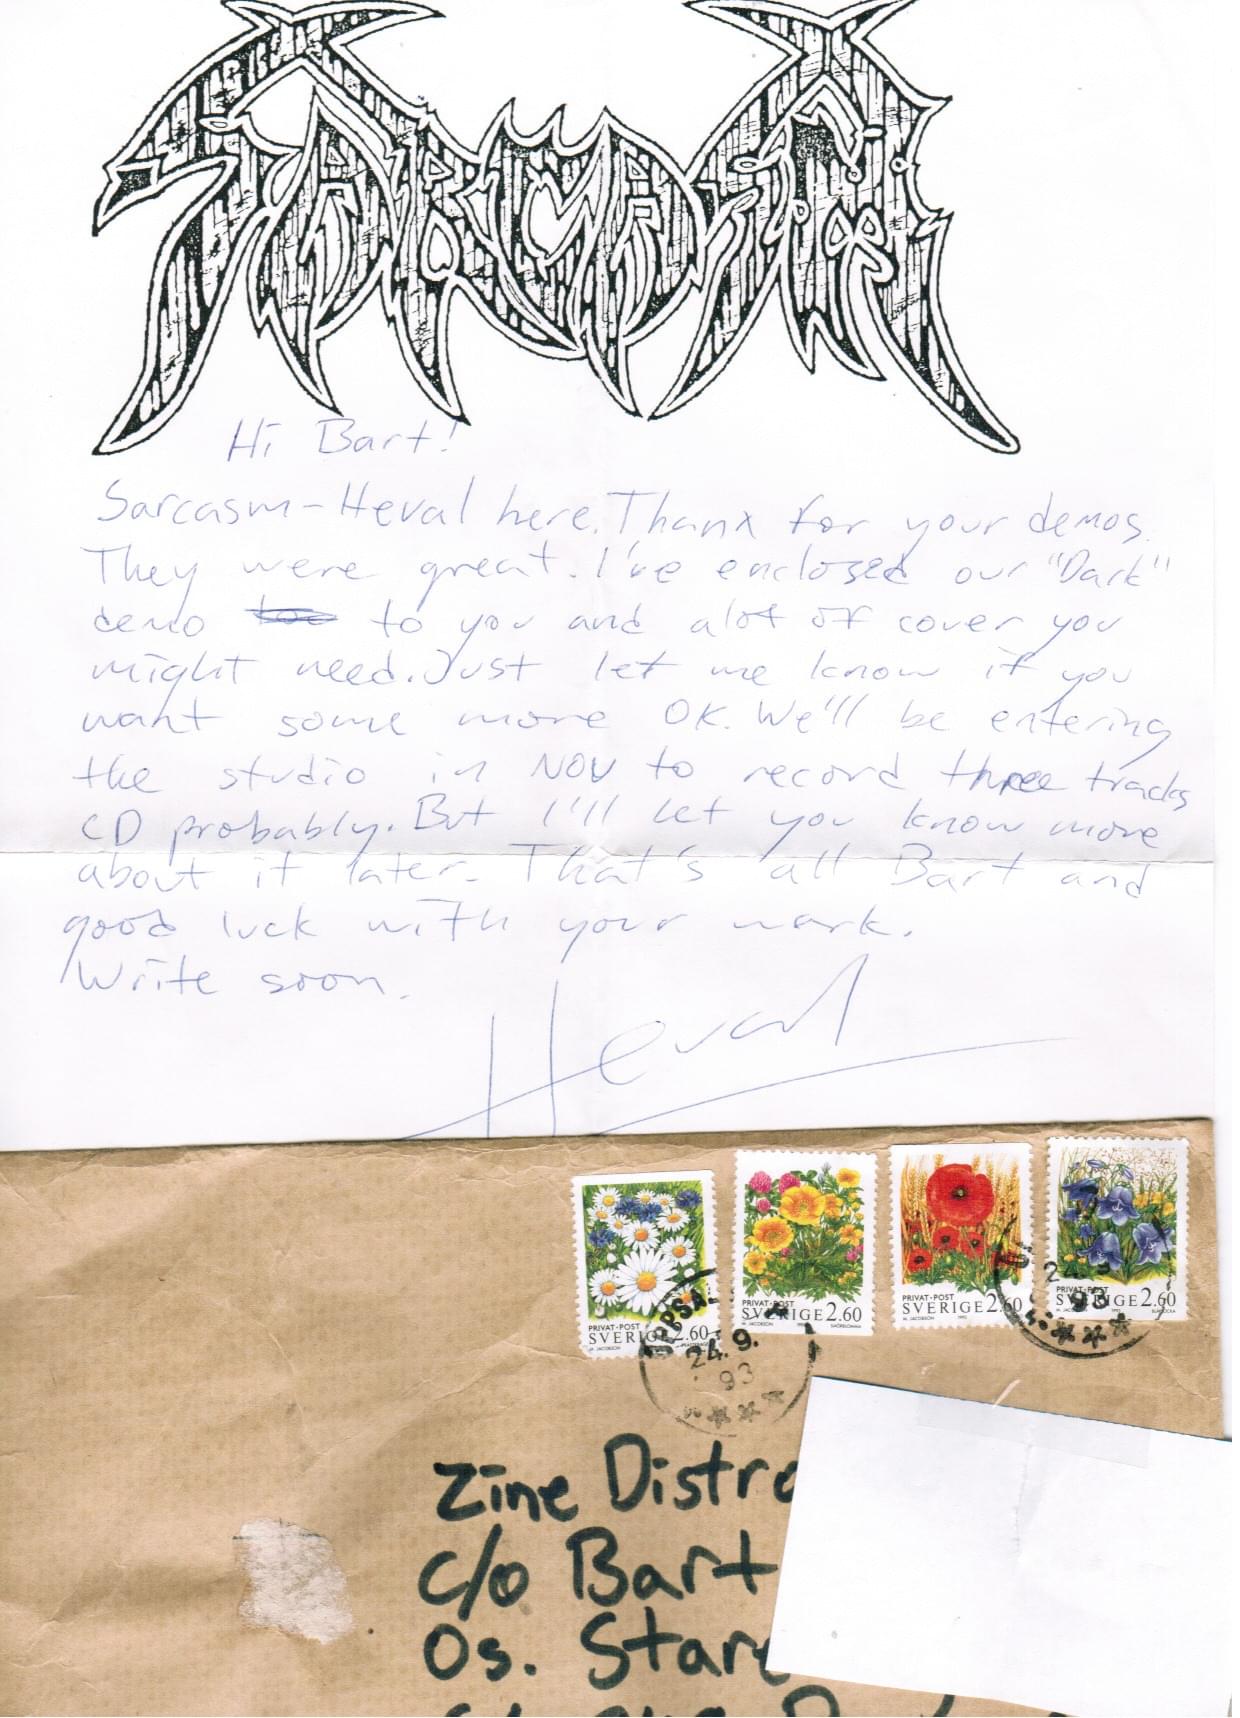 SARCASM
Hi Bart!
Sarcasm-Heval here. Thanx for your demos.
They were great. I've enclosed our "Dark"
demo to you and alot of cover you
might need. Just let me know if you
want some more OK. We'll be entering
the studio in NOV to record three tracks
CD probably. But I'll let you know more
about it later. That's all Bart and
good luck with your work.
Write soon.
Heval
PRIVAT·POST
SVERIGE 2.60
M. JACOBSON
PRIVAT·POST
SVERIGE 2.60
M. JACOBSON 1993 SMÖRBLOMMA
PRIVAT·POST
SVERIGE 2.60
M. JACOBSON 1993
SVERIGE 2.60
BLÅKLOCKA
UPPSALA
24.9.
93
24.9
93
Zine Distro
c/o Bart
Os. Star